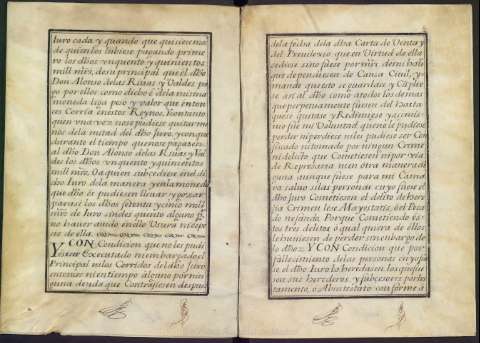 Juro cada y quando que quisieren o
de quien los tubiese pagando prime
ro los dhos Vn quento y quinientos
mill mrs, de su principal que el dho
Don Alonso de las Rúas y Valdes pa
go por ellos como dicho és de la misma
moneda liga peso y valor que enton
ces Corria en estos Reynos, Y contanto
que en una vez no se pudiese quitar me
nos de la mitad del dho Juro, y conque
durante el tiempo que no se pagasen
al dho Don Alonso de las Rúas y Val
des los dhos Vn quento y quinientos
mill mrs, O a quien subcediese en el di
cho Juro de la manera y en la moneda
que dho és pudiesen llevar y gozar
para si los dhos setenta y cinco mill
mrs de Juro sin descuento alguno p.
no hauer auido en ello Vsura ni espe
cie de ella.
Y CON Condicion que no les pudi
ese ser Executado ni embargado, el
Principal ni los Corridos del dho Juro
en tiempo alguno por nin
guna deuda que Contrajesen despues
de la fecha de la dha Carta de Venta y
del Preuilexio que en Virtud de ella
se diese sino fuese por mrs de mi hab
que dependiesen de Causa Ciuil, y
mando que esto se guardase y Cüplie
se asi al dho como a todos los demas
que perpetuamente fuesen del hasta
que se quitase y Redimiese y asi mis
mo fue mi Voluntad que no le pudiese
perder ni perdiese ni les pudiese ser Con
fiscado ni tomado por ningun Crime
ni delito que Cometiesen ni por via
de Represaria ni en otra manera al
guna aunque fuese para mi Cama
ra saluo si las personas cuyo fuese el
dho Juro Cometiesen el delito de here
gia Crimen lese Mayestatis, ò el Peca
do nefando, Porque Cometiendo es
tos tres delitos ò qual quiera de ellos
le huuiesen de perder sin embargo de
lo dho = Y CON Condicion que por
fallecimiento de las personas cuyo fue
se el dho Juro lo heredasen los que fue
sen sus herederos y subcesores por tes
tamento, o Abintestato conforme á